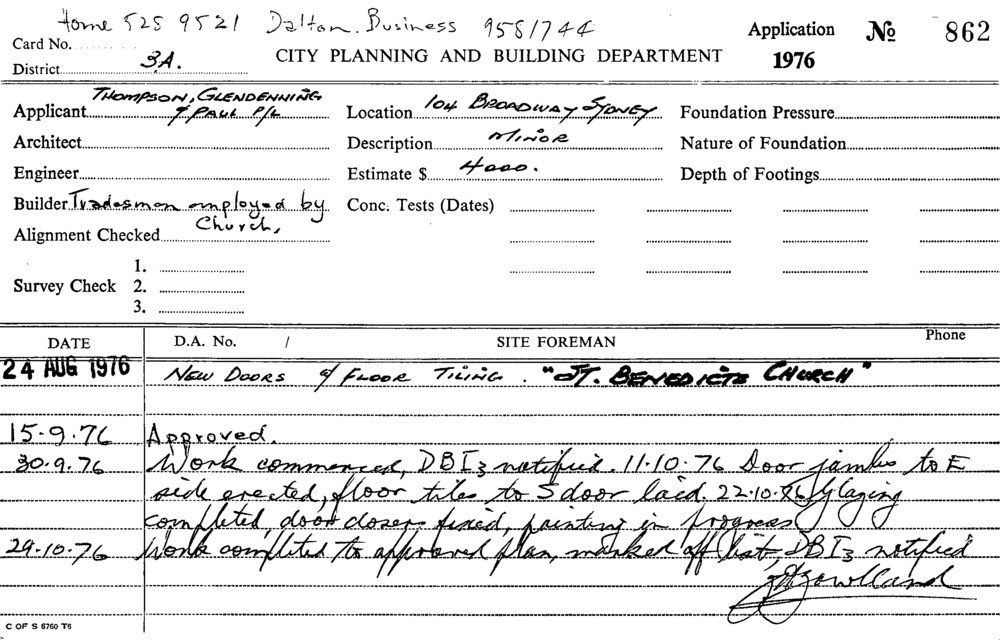 Home 528 9521 Dalton. Business 9581744
Card No.
Application No 862
District 3A.
CITY PLANNING AND BUILDING DEPARTMENT
1976
Applicant THOMPSON, GLENDENNING & PAUL P/L
Location 104 BROADWAY SYDNEY
Foundation Pressure
Architect
Description MINOR
Nature of Foundation
Engineer
Estimate $ 4000.
Depth of Footings
Builder Tradesmen employed by Church,
Conc. Tests (Dates)
Alignment Checked
1.
Survey Check 2.
3.
DATE D.A. No. / SITE FOREMAN Phone
24 AUG 1976 NEW DOORS & FLOOR TILING. "ST. BENEDICTS CHURCH"
15.9.76 Approved.
30.9.76 Work commenced, DBI3 notified. 11.10.76 Door jambs to E
side erected, floor tiles to S door laid. 22.10.76 Glazing
completed, door closers fixed, painting in progress
29.10.76 Work completed to approved plan, marked off list, DBI3 notified
C OF S 6760 T5